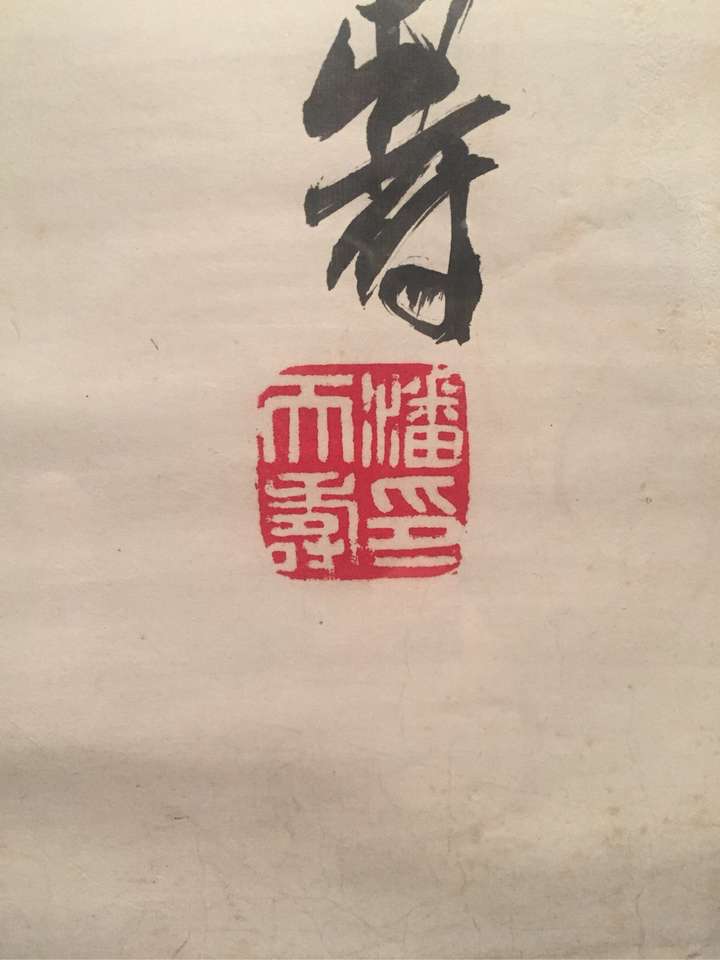 壽
潘天壽印